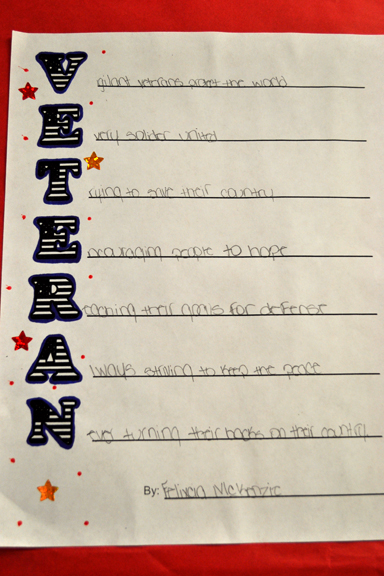 Vigilant vetrans protect the world
Every solider united
Trying to save their country
Encouraging people to hope
Reaching their goals for defense
Always striving to keep the peace
Never turning their backs on their country
By: Felicia McKenzie